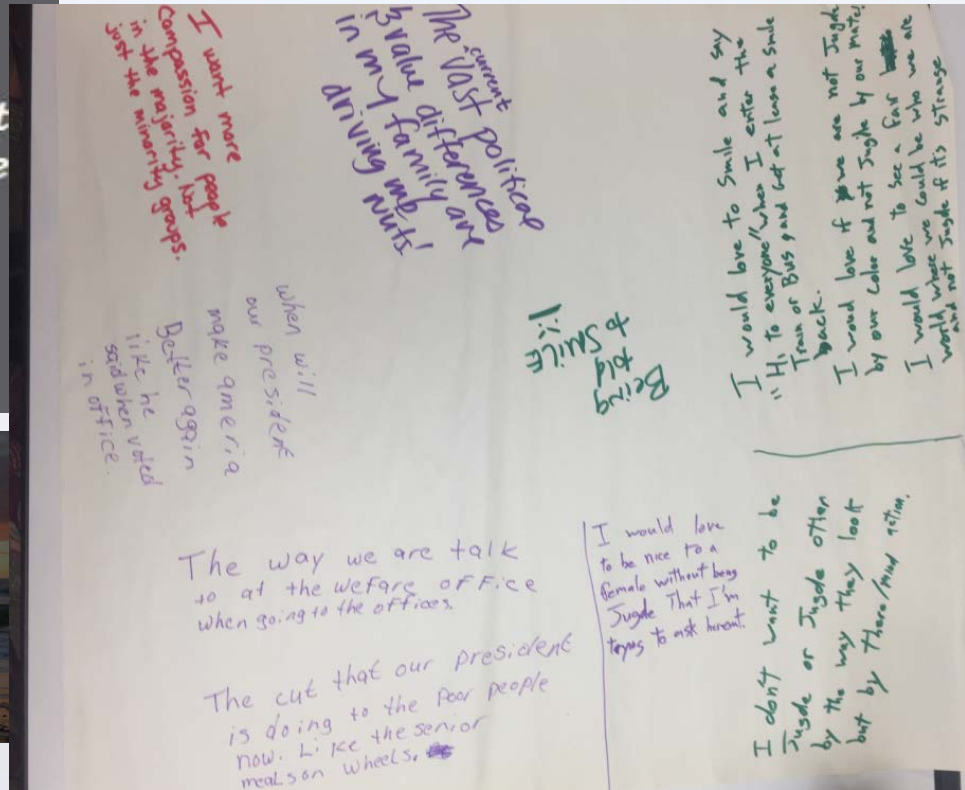 I want more
compassion for people
in the majority. Not
just the minority groups.
The current vast political
& value differences
in my family are
driving me
nuts!
when will
our president
make ameria
Better again
like he
said when voted
in office.
Being
told
to SMILE
I would love to Smile and say
"Hi, to everyone" when I enter the
Train or Bus, and Get at lease a Smile
back.
I woud love if we are not Jugde
by our color and not Jugde by our mater
I would love to see a fair
world, where we could be who we are
and not Jugde if its strange
The way we are talk
to at the wefare office
when going to the offices.
The cut that our president
is doing to the poor people
now. Like the senior
meals on wheels.
I would love
to be nice to a
female without being
Jugde That I'm
trying to ask herout.
I don't want to be
Jugde or Jugde otter
by the way they look
but by there/mind action.